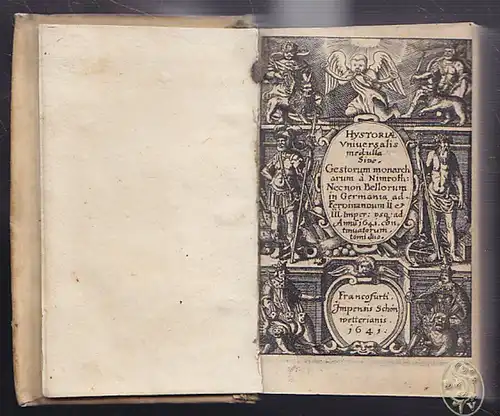 HYSTORIÆ
Vniuersalis
medulla
Siue
Gestorum monarch
arum à Nimroth:
Necnon Bellorum
in Germania ad
Ferdinandum II et
III Imper: vsq; ad
Annū 1641. con
tinuatorum
tomi duo.
Francofurti.
Impensis Schön
wetterianis.
1641.